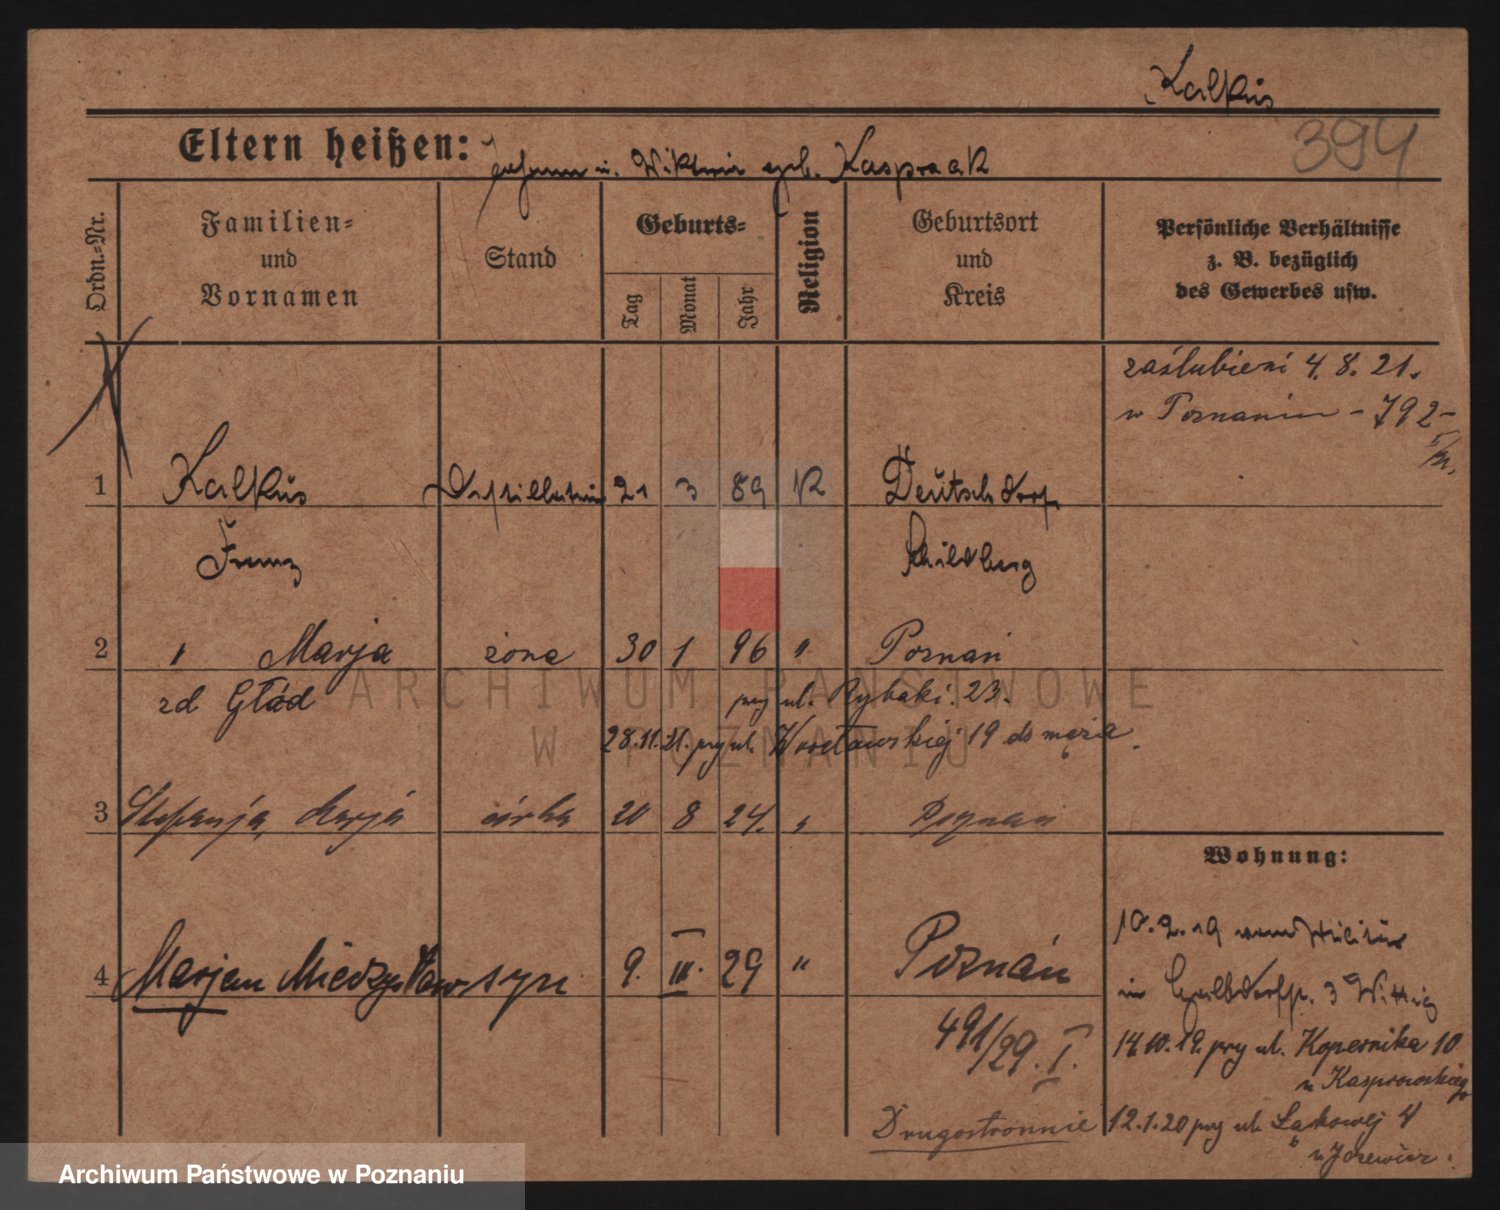 Kalkus
394
Eltern heißen: Johann u. Wiktoria geb. Kasprzak
Ordn.=Nr.
Familien=
und
Vornamen
Stand
Geburts=
Tag
Monat
Jahr
Religion
Geburtsort
und
Kreis
Persönliche Verhältnisse
z. B. bezüglich
des Gewerbes usw.
zaślubieni 4. 8. 21.
w Poznaniu - 792-
1 Kalkus 21 3 89 K Deutschdorf
Franz Schildberg
2 " Marja żona 30 1 96 " Poznań
zd Głód przy ul. Rybaki. 23.
28.11.21. przy ul. Wrocławskiej 19 do męża.
3 Stefanja, Marja córka 20 8 24. " Poznań
Wohnung:
4 Marjan Mieczysław syn 9. III. 29 " Poznań
10.2.19 vom Militär
in 3 Wittig
491/29. I.
14.10.19. przy ul. Kopernika 10
u Kasprowskiego
Drugostronnie
12.1.20 przy ul. Łąkowej 4
u Jozewicz.
ARCHIWUM PAŃSTWOWE
W POZNANIU
Archiwum Państwowe w Poznaniu